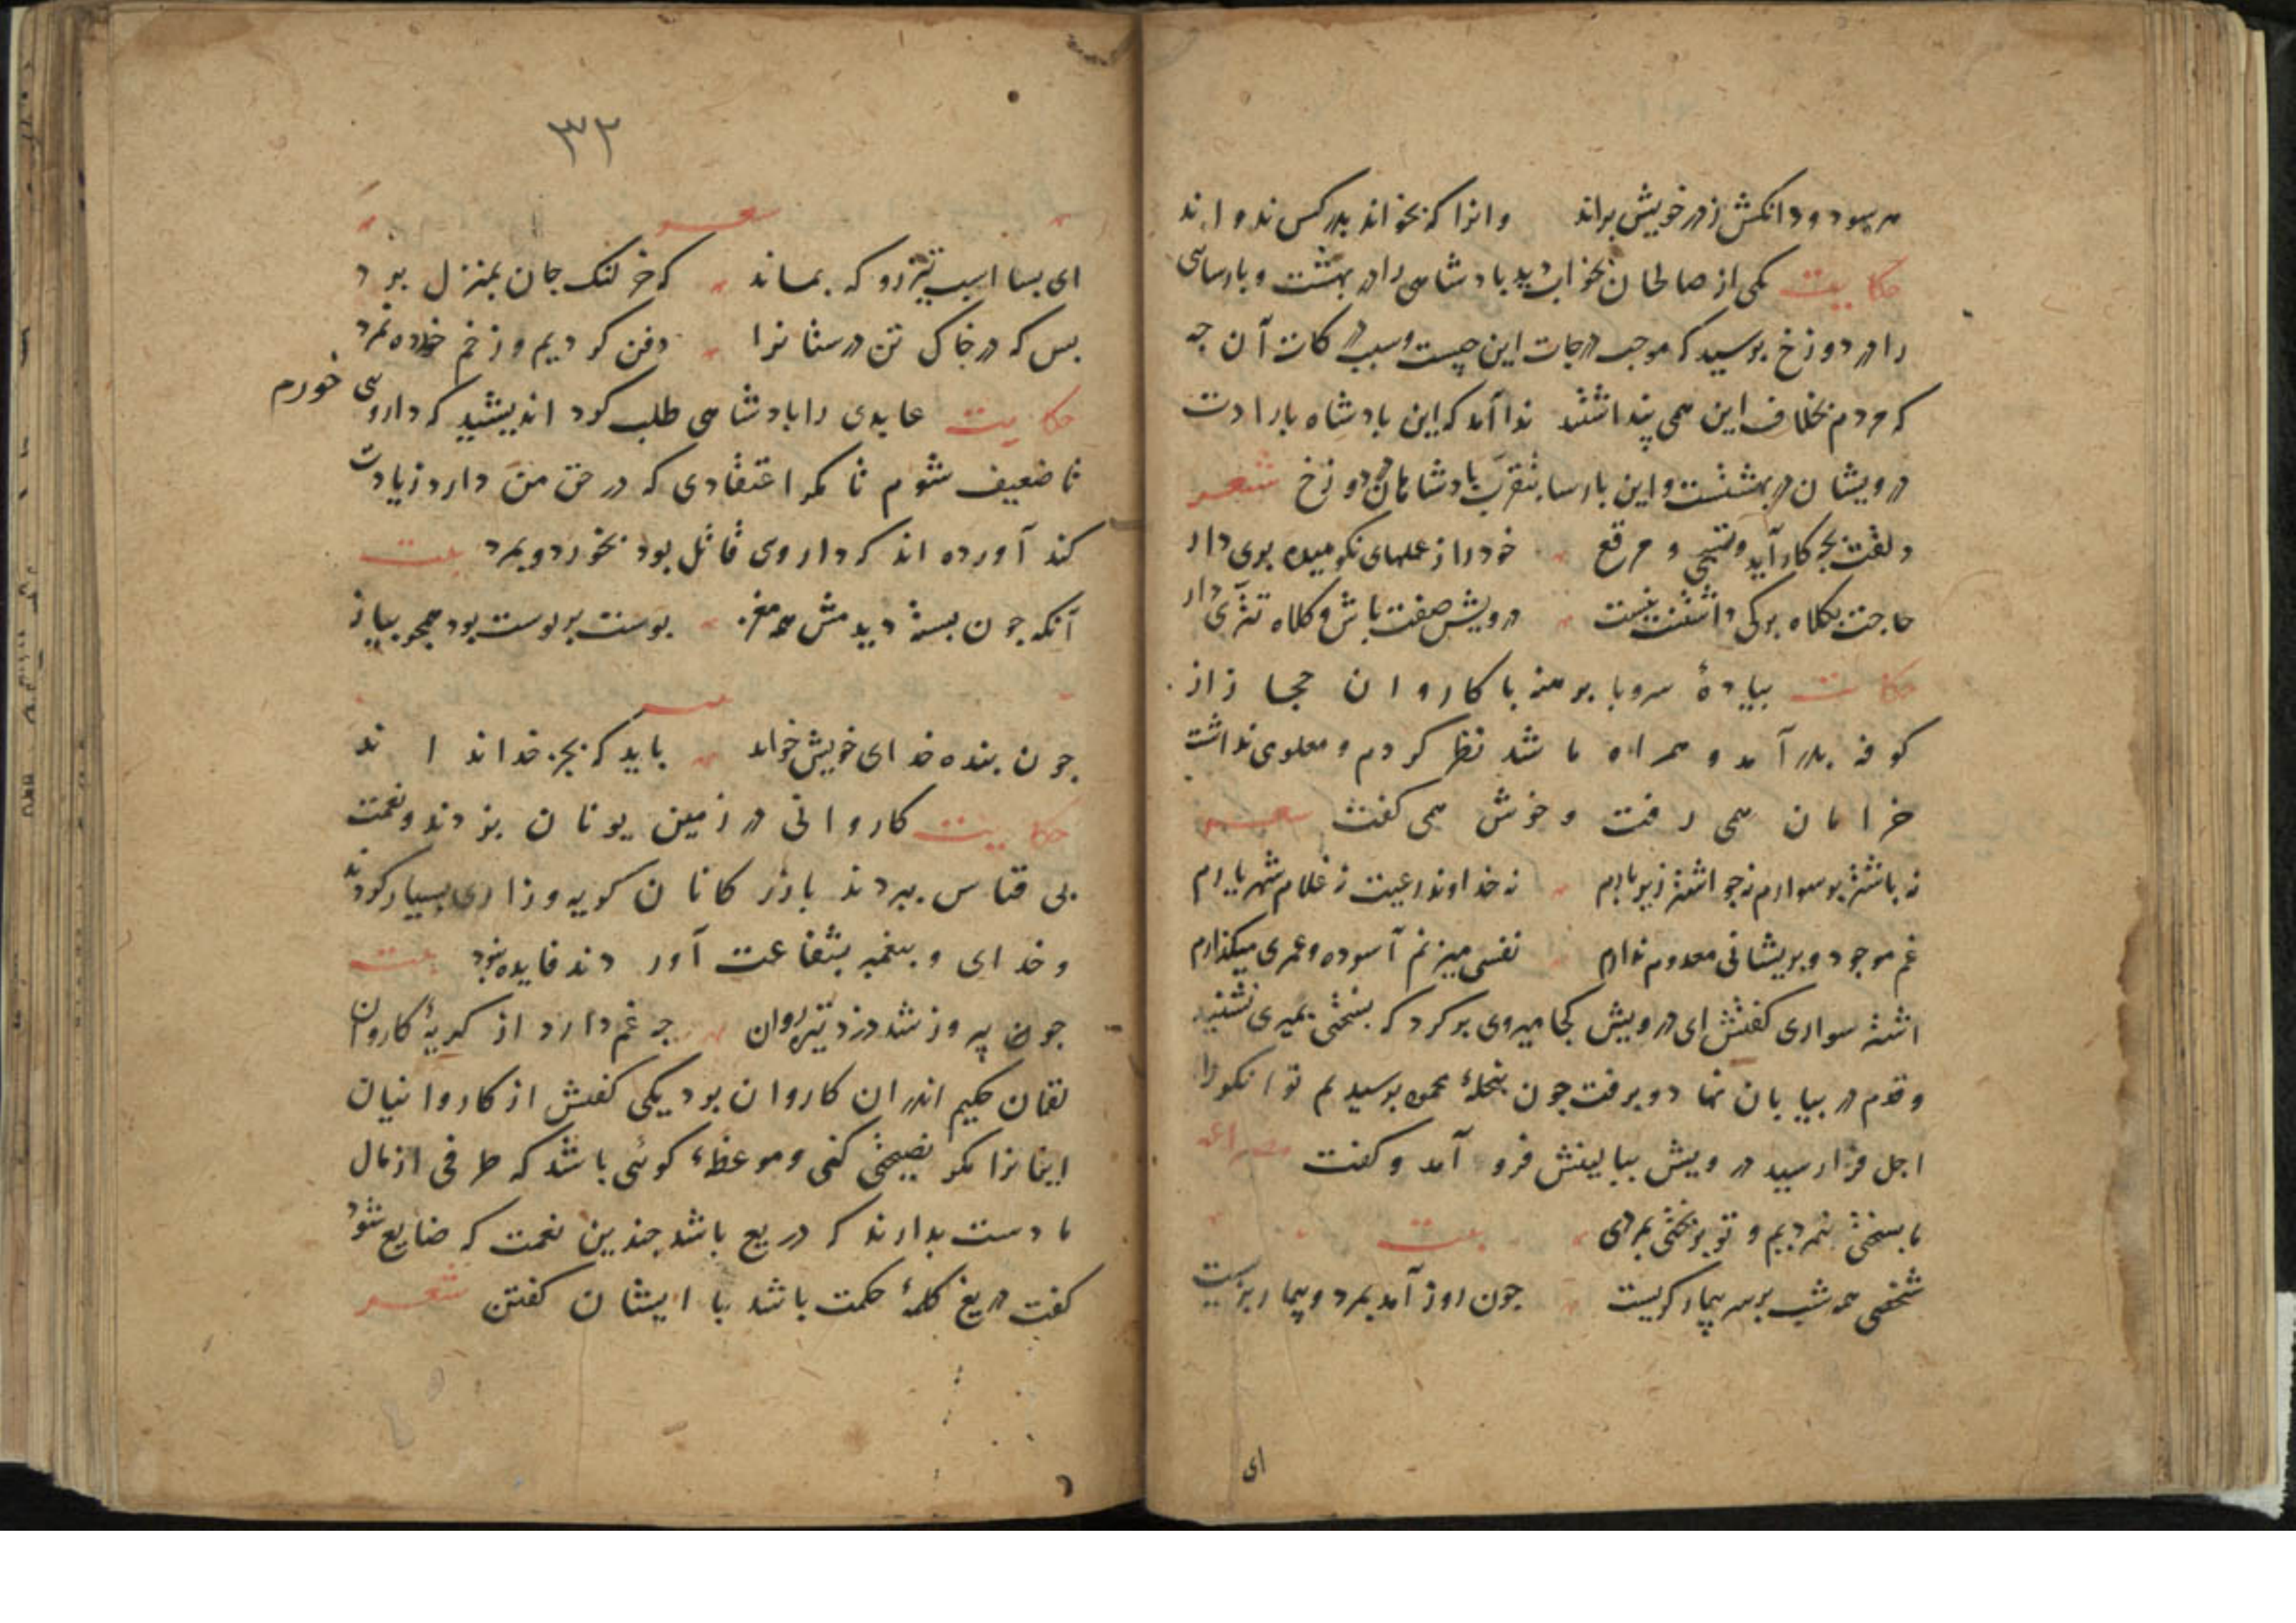 هر سو دود آنکش ز در خویش براند وانرا که بخواند بدر کس ندواند
حکایت یکی از صالحان بخواب دید بادشاهی را در بهشت و بارسایی
را در دوزخ برسید که موجب درجات این چیست و سبب درکات آن چه
که مردم بخلاف این همی پنداشتند ندا آمد که این بادشاه بارادت
درویشان در بهشتست و این بارسا بتقرب بادشاهان در دوزخ شعر
دلقت بچه کار آید و تسبیح و مرقع خود را ز عملهای نکوهیده بری دار
حاجت بکلاه برکی داشتنت نیست درویش صفت باش و کلاه تتری دار
حکایت بیادهٔ سر و با برهنه با کاروان حجاز از
کوفه بدر آمد و همراه ما شد نظر کردم و معلومی نداشت
خرامان همی رفت و خوش همی کفت شعر
نه باشتر بر سوارم نه چو اشتر زیر بارم نه خداوند رعیت نه غلام شهریارم
غم موجود و بریشانی معدوم ندارم نفسی میزنم آسوده و عمری میکذارم
اشتر سواری کفتش ای درویش کجا میروی برکرد که بسختی بمیری نشنید
و قدم در بیابان نهاد و برفت چون بنخلهٔ محمود برسیدیم توانکر را
اجل فرا رسید درویش ببالینش فرو آمد و کفت مصراعه
ما بسختی بنمردیم و تو بر بختی بمردی بیت
شخصی همه شب بر سر بیمار کریست چون روز آمد بمرد و بیمار بزیست
ای
۳۲
شعر
ای بسا اسب تیزرو که بماند که خر لنک جان بمنزل برد
بس که در خاک تن درستانرا دفن کردیم و زخم خورده نمرد
حکایت عابدی را بادشاهی طلب کرد اندیشید که داروی خورم
تا ضعیف شوم تا مکر اعتقادی که در حق من دارد زیادت
کند آورده اند که داروی قاتل بود بخورد و بمرد بیت
آنکه چون بسته دیدمش همه مغز بوست بر بوست بود همچو بیاز
شعر
چون بنده خدای خویش خواند باید که بجز خدا نداند
حکایت کاروانی در زمین یونان بزدند و نعمت
بی قیاس ببردند بازرکانان کریه و زاری بسیار کردند
و خدای و بیغمبر بشفاعت آوردند فایده نبود بیت
چون پیروز شد دزد تیره روان چه غم دارد از کریهٔ کاروان
لقمان حکیم اندر ان کاروان بود یکی کفتش از کاروانیان
اینانرا مکر نصیحتی کنی و موعظهٔ کوئی باشد که طرفی از مال
ما دست بدارند که دریغ باشد چندین نعمت که ضایع شود
کفت دریغ کلمهٔ حکمت باشد با ایشان کفتن شعر